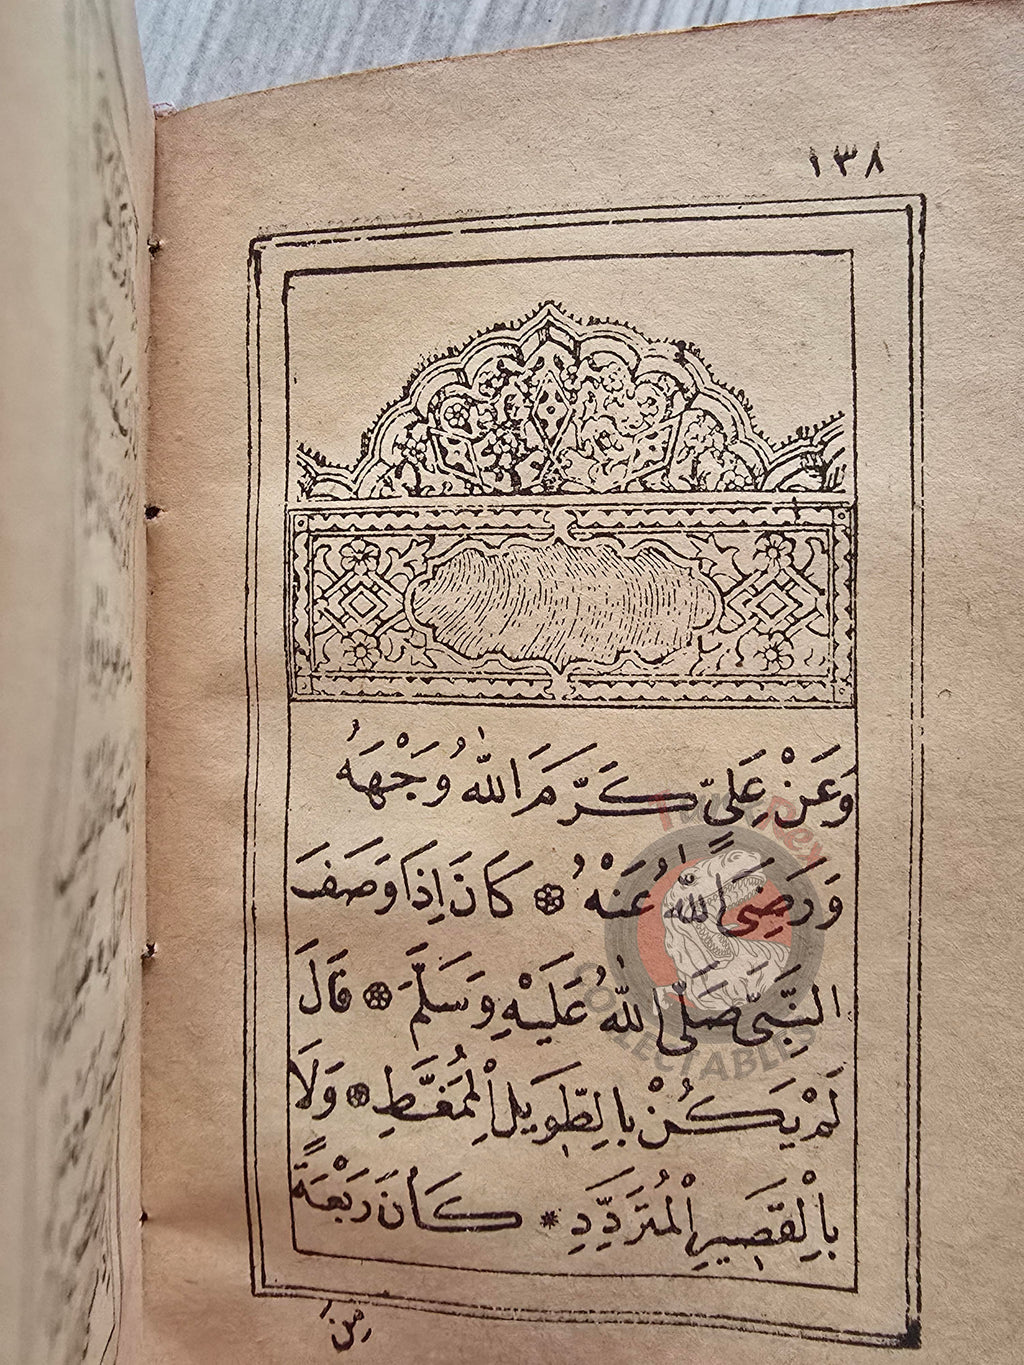 ١٣٨
وَعَنْ عَلِىٍّ كَرَّمَ اللّٰهُ وَجْهَهُ
وَرَضِىَ اللّٰهُ عَنْهُ ۞ كَانَ اِذَا وَصَفَ
النَّبِىَّ صَلَّى اللّٰهُ عَلَيْهِ وَسَلَّمَ ۞ قَالَ
لَمْ يَكُنْ بِالطَّوِيلِ الْمُمَغَّطِ ۞ وَلَا
بِالْقَصِيرِ الْمُتَرَدِّدِ * كَانَ رَبْعَةً
مِنَ
TurkRex
COLLECTABLES